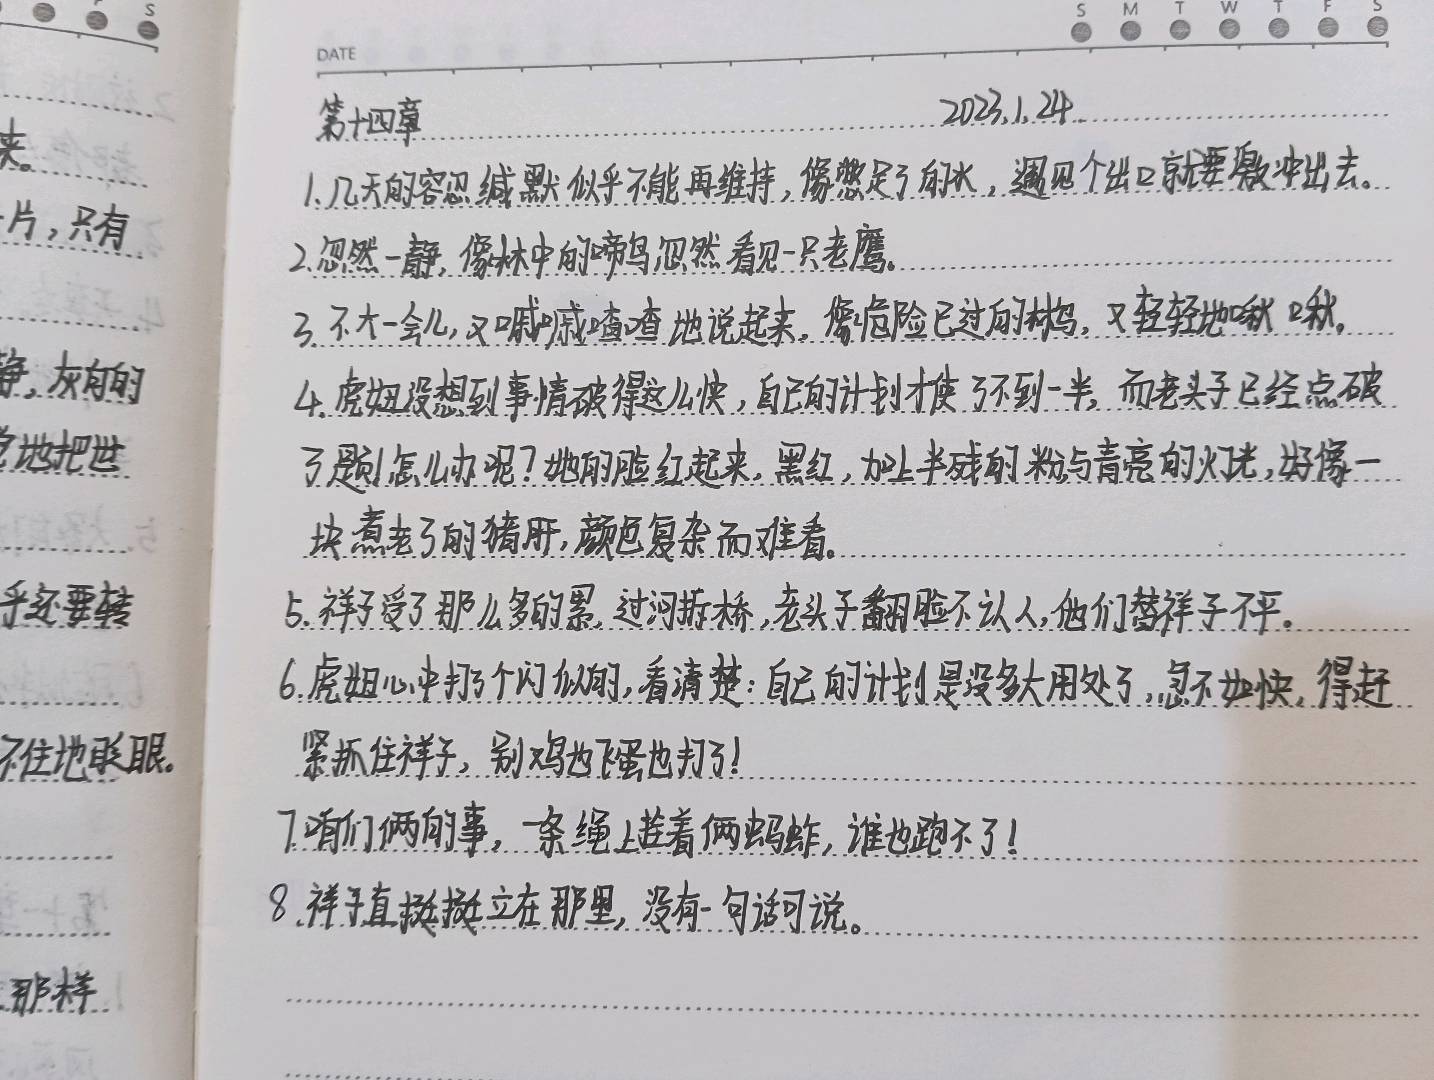 S
来。
一片，只有
静，灰白的
地把世
乎还要转
不住地眨眼。
那样
S M T W T F S
DATE
第十四章 2023.1.24.
1.几天的容忍缄默似乎不能再维持，像憋足了的水，遇见个出口就要激冲出去。
2.忽然一静，像林中的啼鸟忽然看见一只老鹰。
3.不大一会儿，又嘁嘁喳喳地说起来，像危险已过的林鸟，又轻轻地啾啾。
4.虎妞没想到事情破得这么快，自己的计划才使了不到一半，而老头子已经点破
了题！怎么办呢？她的脸红起来，黑红，加上半残的粉与青亮的灯光，好像一
块煮老了的猪肝，颜色复杂而难看。
5.祥子受了那么多的累，过河拆桥，老头子翻脸不认人，他们替祥子不平。
6.虎妞心中打了个闪似的，看清楚：自己的计划是没多大用处了，急不如快，得赶
紧抓住祥子，别鸡也飞蛋也打了！
7.咱们俩的事，一条绳上拴着俩蚂蚱，谁也跑不了！
8.祥子直挺挺立在那里，没有一句话可说。